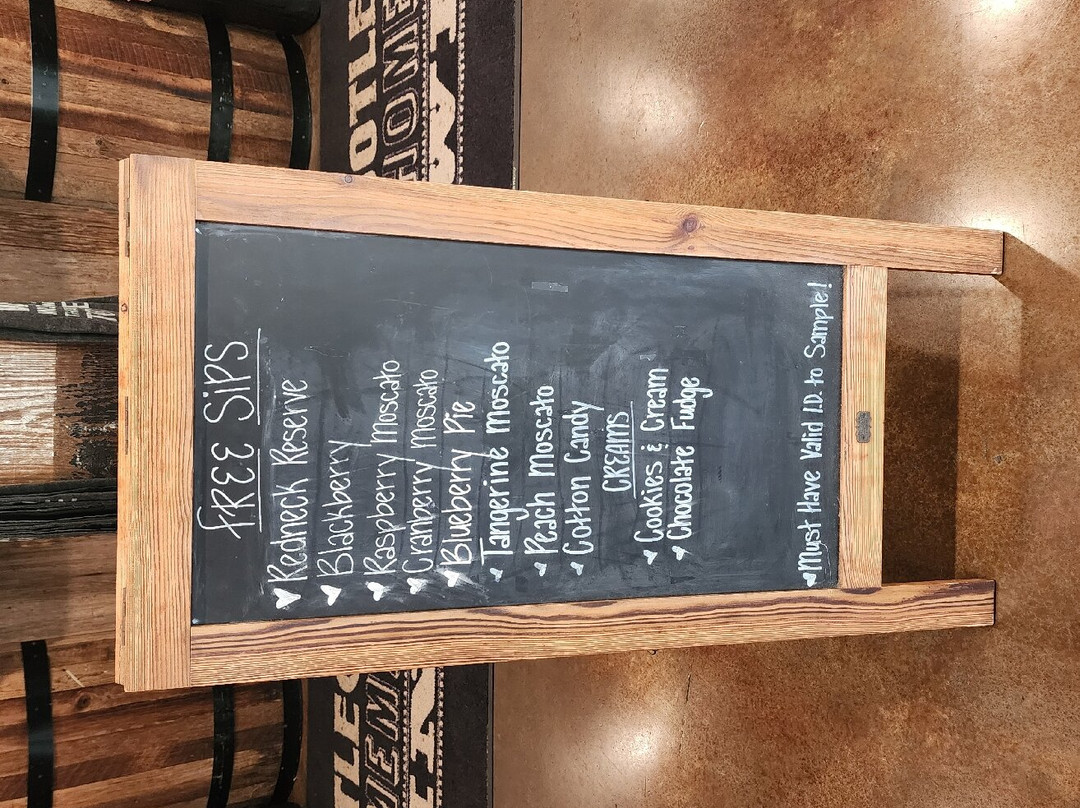 FREE SiPS
Redneck Reserve
Blackberry
Raspberry Moscato
Cranberry Moscato
Blueberry Pie
Tangerine Moscato
Peach Moscato
Cotton Candy
CREAMS
Cookies & Cream
Chocolate Fudge
Must Have Valid I.D. to Sample!